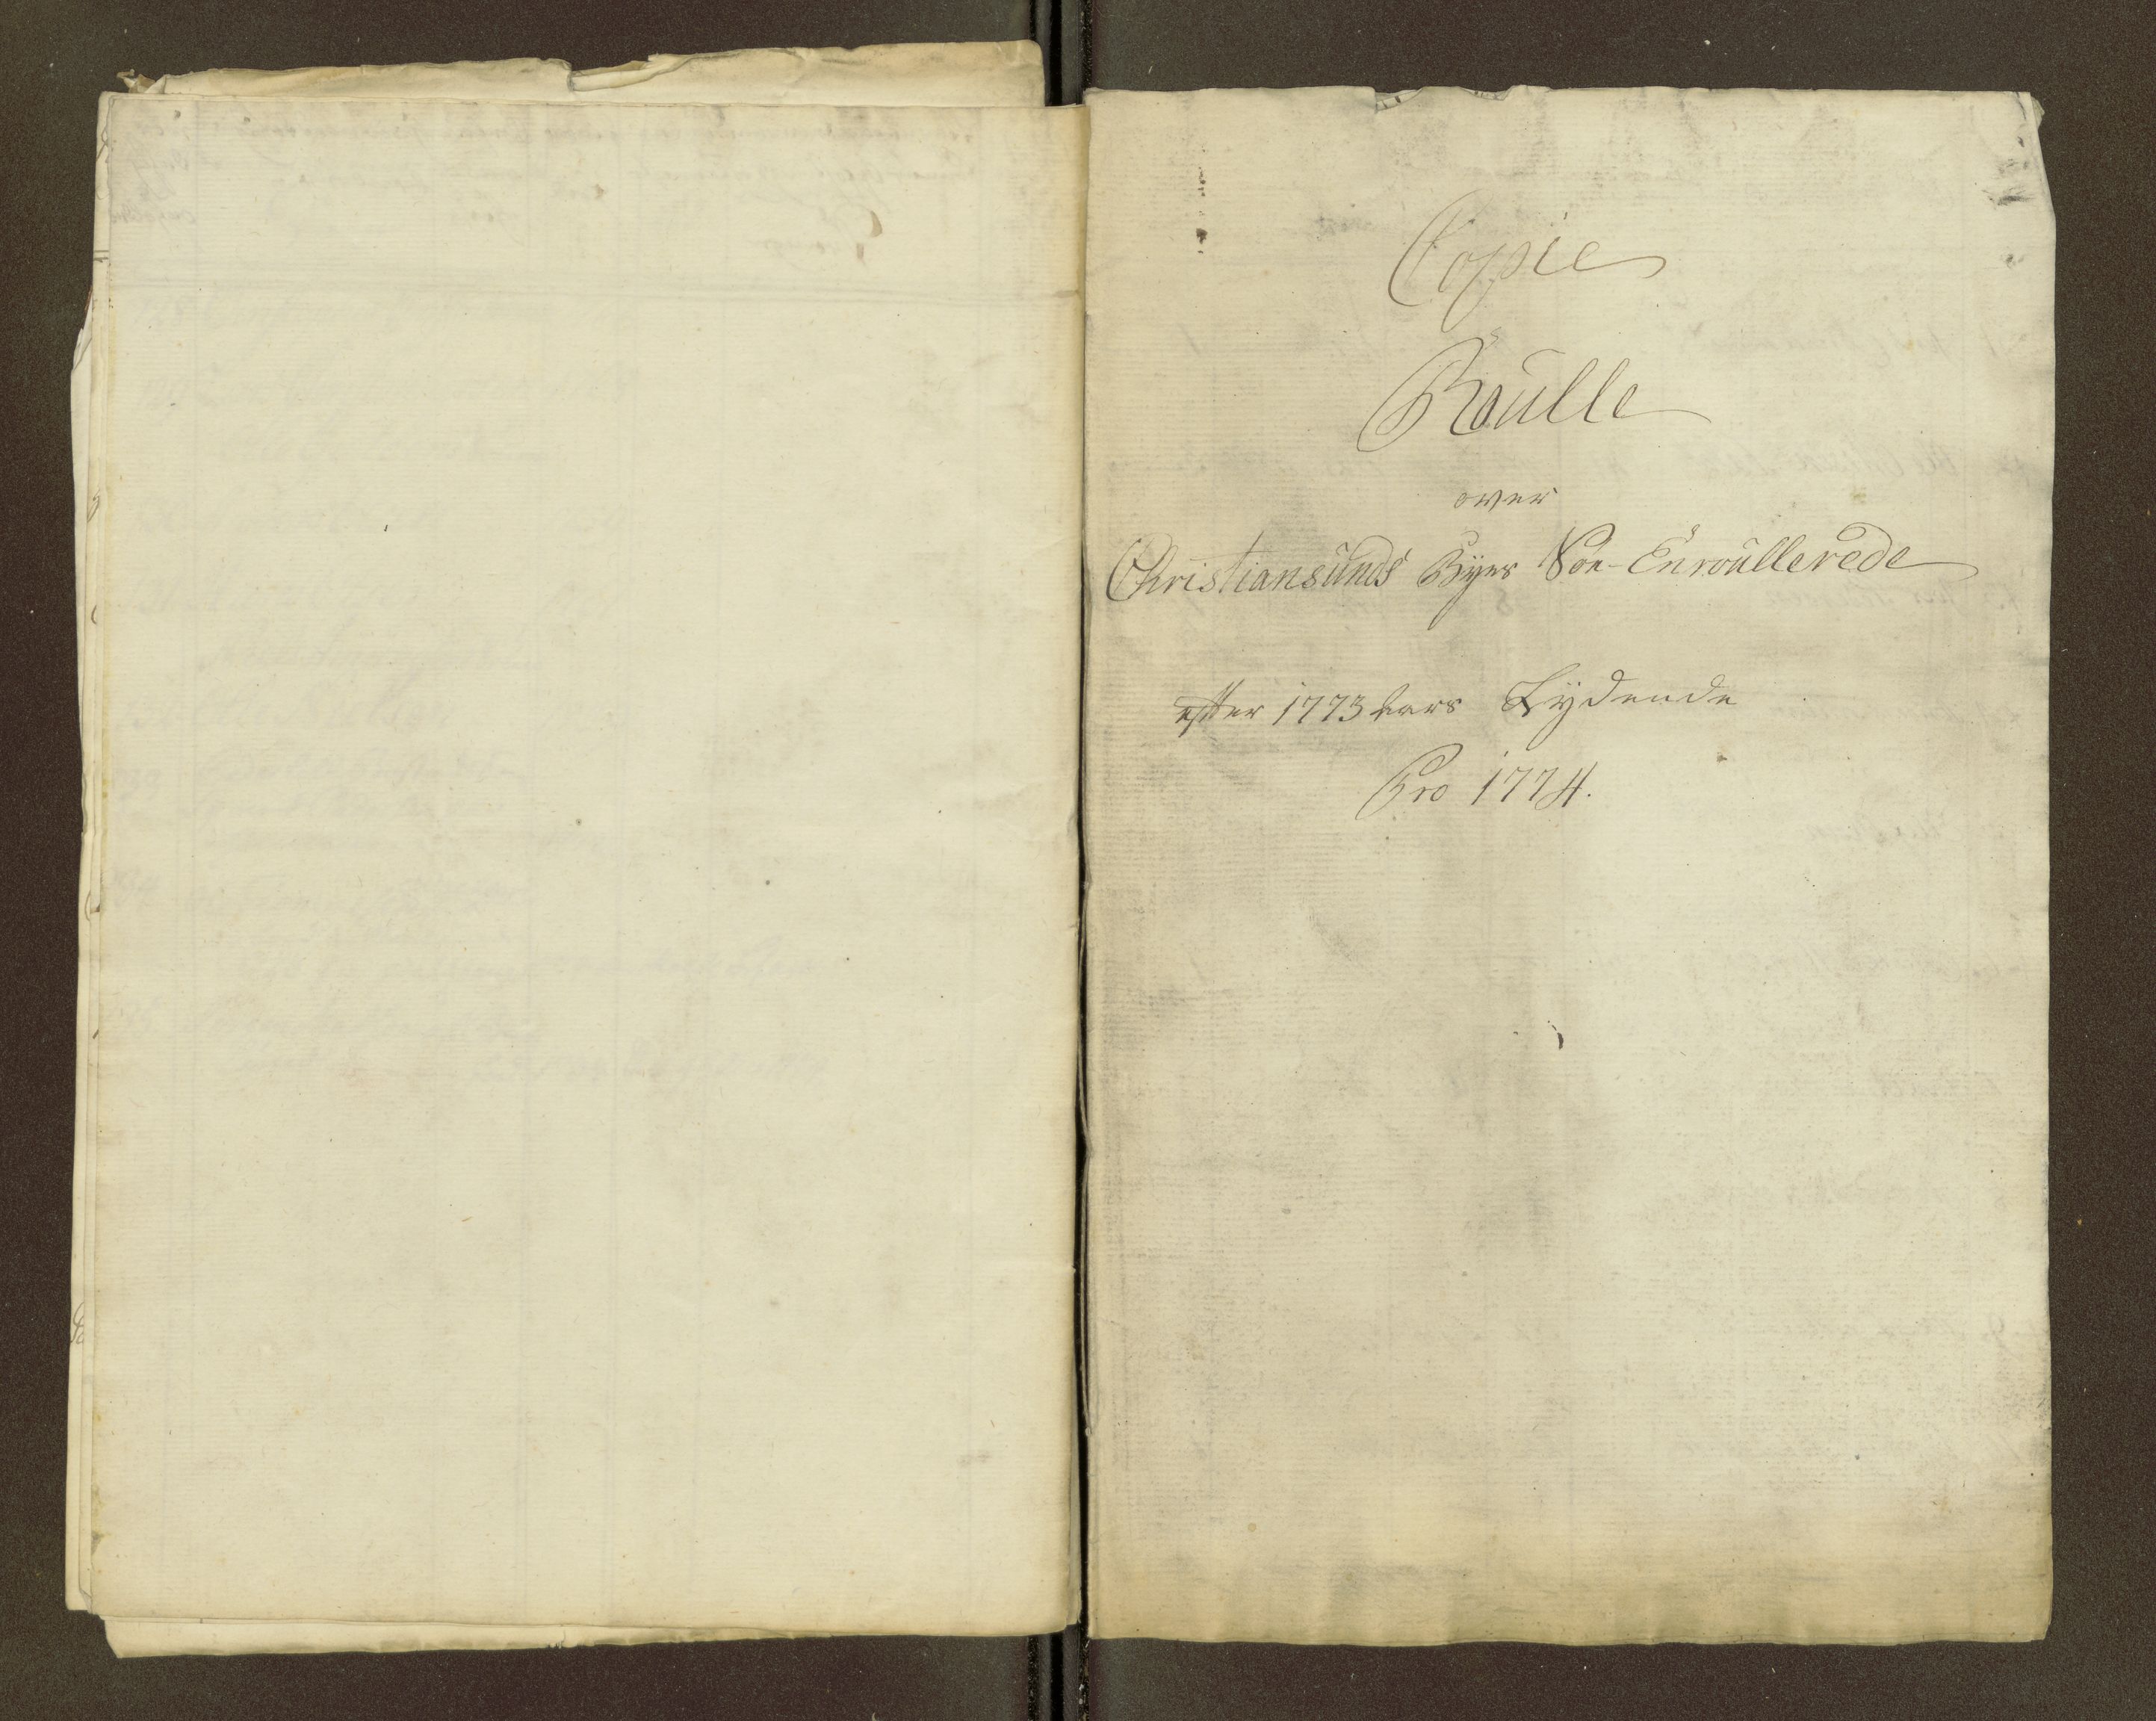 Copie
Roulle
over
Christiansunds Byes Söe-Enroullerede
efter 1773 Aars Lydende
Pro 1774.